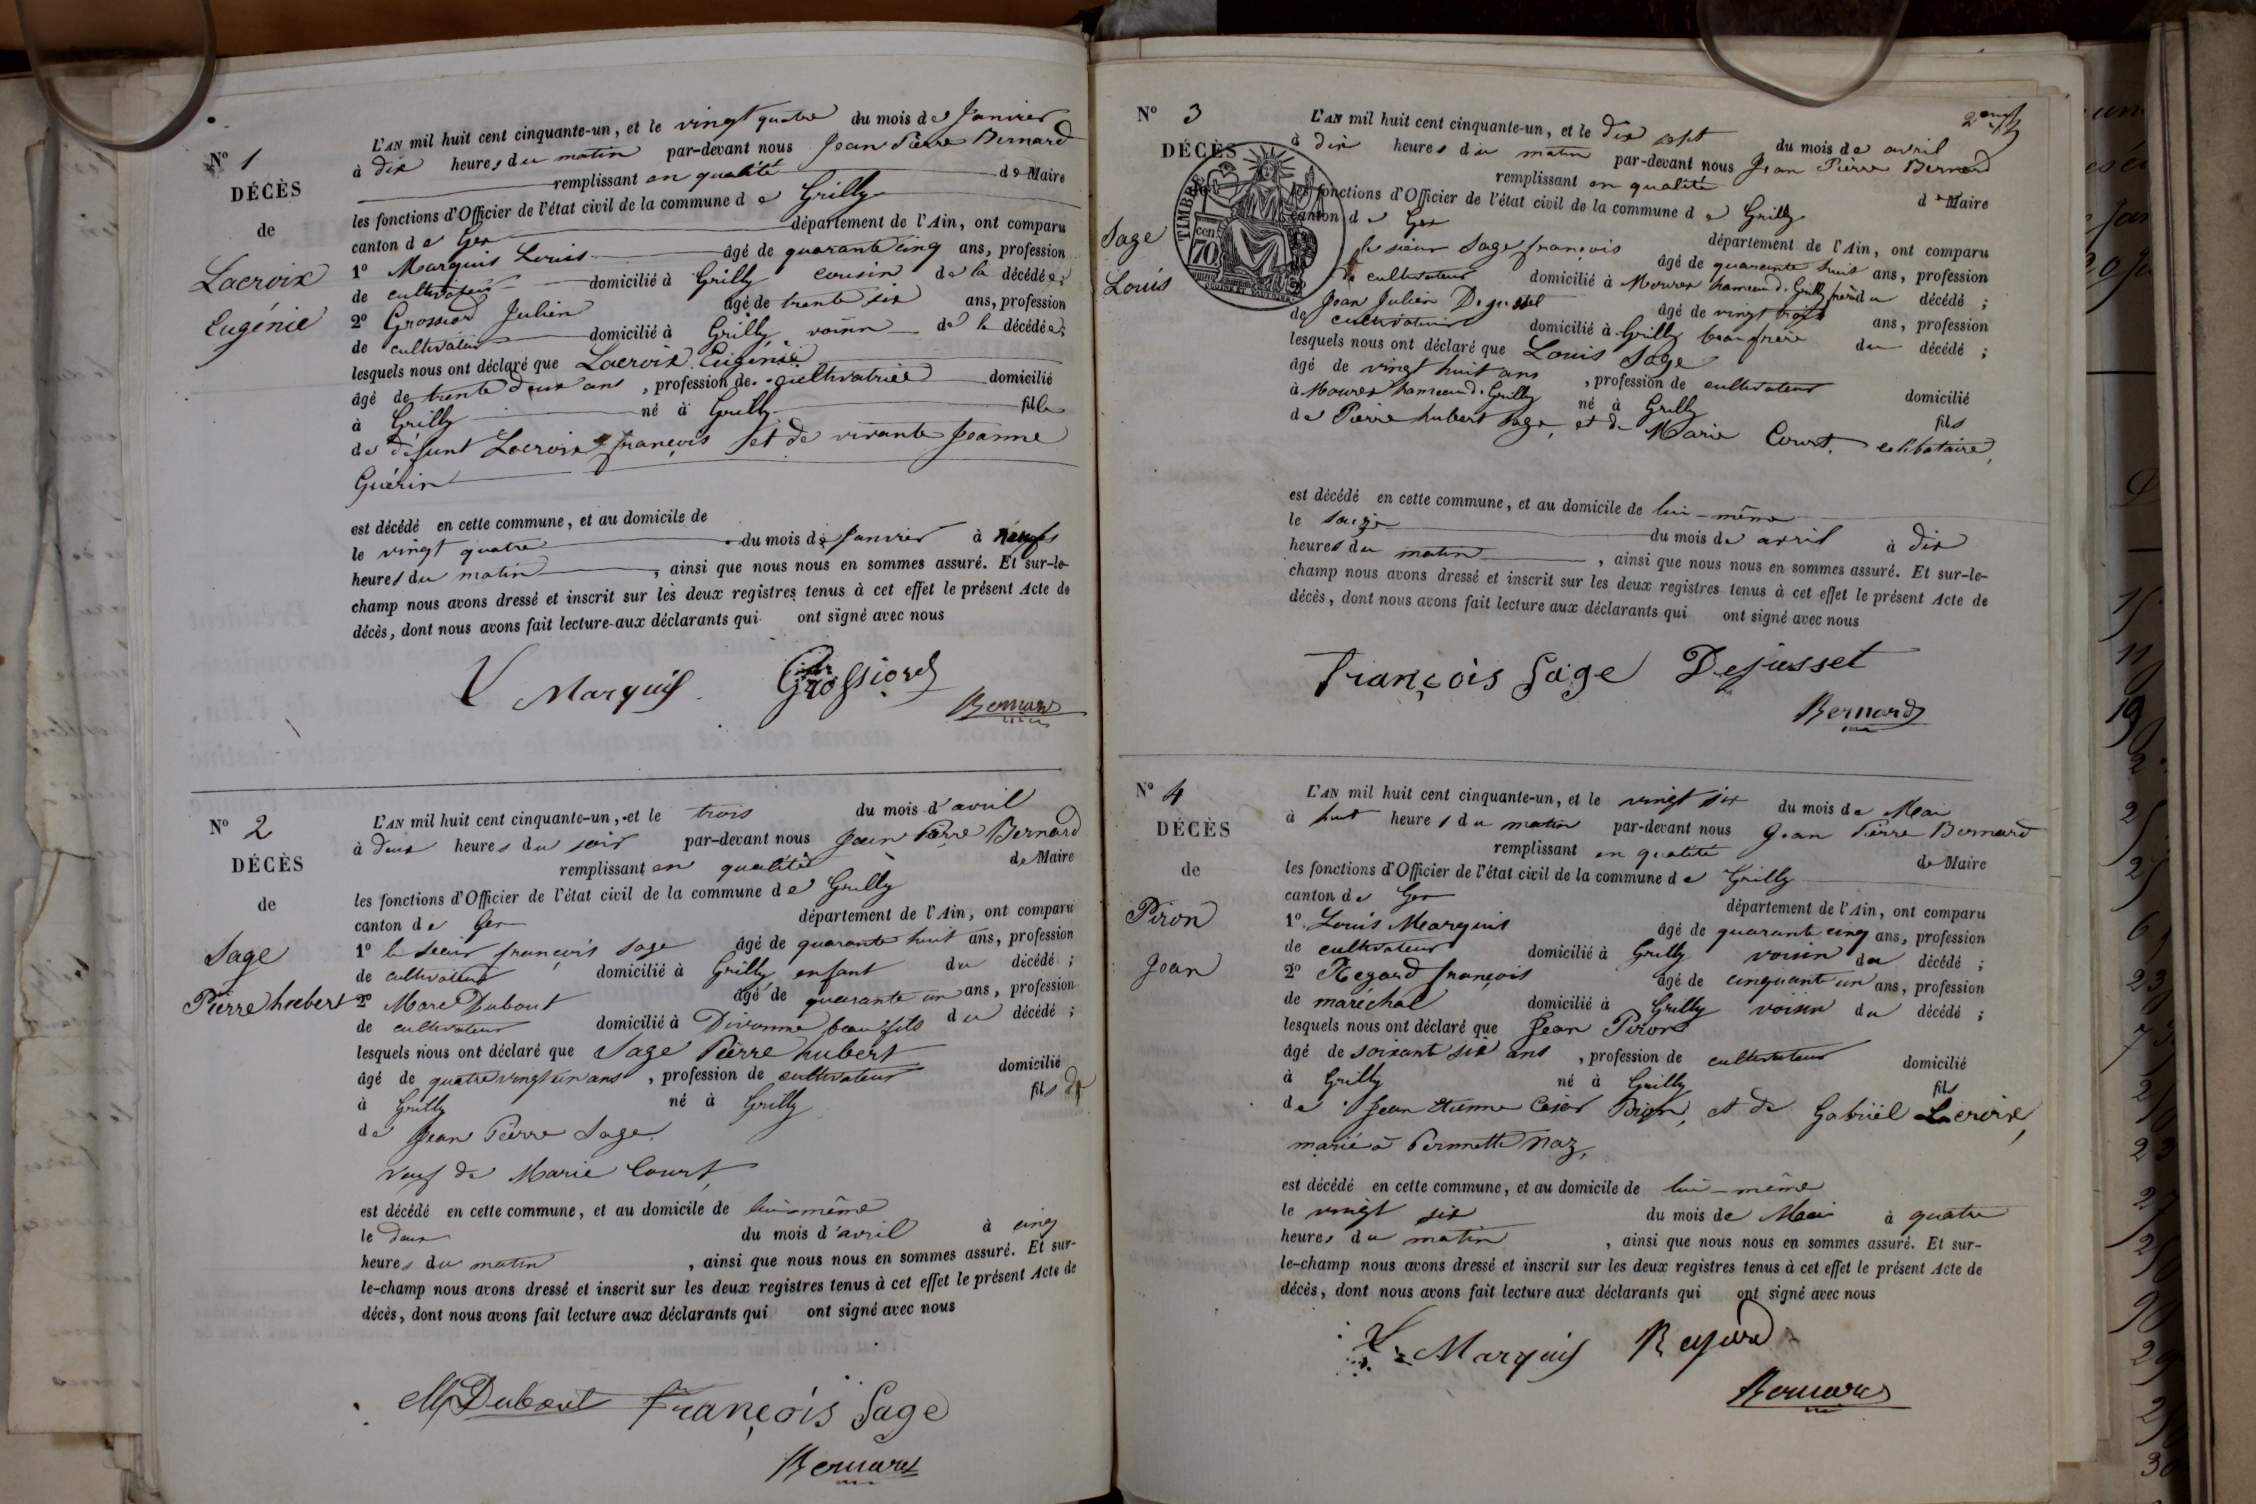 Nº 1
DÉCÈS
de
Lacroix
Eugénie
L'AN mil huit cent cinquante-un, et le vingt quatre du mois de Janvier
à dix heures du matin par-devant nous Jean Pierre Bernard
remplissant en qualité de Maire
les fonctions d'Officier de l'état civil de la commune de Grilly
canton de Gex département de l'Ain, ont comparu
1º Marquis Louis âgé de quarante cinq ans, profession
de cultivateur domicilié à Grilly cousin de la décédée;
2º Grossiord Julien âgé de trente six ans, profession
de cultivateur domicilié à Grilly voisin de la décédée;
lesquels nous ont déclaré que Lacroix Eugénie
âgé de trente deux ans, profession de cultivatrice domicilié
à Grilly né à Grilly fille
de défunt Lacroix françois et de vivante Jeanne
Guérin
est décédé en cette commune, et au domicile de
le vingt quatre du mois de Janvier à neuf
heures du matin, ainsi que nous nous en sommes assuré. Et sur-le-
champ nous avons dressé et inscrit sur les deux registres tenus à cet effet le présent Acte de
décès, dont nous avons fait lecture aux déclarants qui ont signé avec nous
Marquis Grossiord
Bernard
Nº 2
DÉCÈS
de
Sage
Pierre hubert
L'AN mil huit cent cinquante-un, et le trois du mois d'avril
à deux heures du soir par-devant nous Jean Pierre Bernard
remplissant en qualité de Maire
les fonctions d'Officier de l'état civil de la commune de Grilly
canton de Gex département de l'Ain, ont comparu
1º le sieur françois Sage âgé de quarante huit ans, profession
de cultivateur domicilié à Grilly enfant du décédé;
2º Marc Dubout âgé de quarante un ans, profession
de cultivateur domicilié à Divonne beau fils du décédé;
lesquels nous ont déclaré que Sage Pierre hubert
âgé de quatre vingt un ans, profession de cultivateur domicilié
à Grilly né à Grilly fils
de Jean Pierre Sage
veuf de Marie Court
est décédé en cette commune, et au domicile de lui même
le deux du mois d'avril à cinq
heures du matin, ainsi que nous nous en sommes assuré. Et sur-
le-champ nous avons dressé et inscrit sur les deux registres tenus à cet effet le présent Acte de
décès, dont nous avons fait lecture aux déclarants qui ont signé avec nous
M Dubout françois Sage
Bernard
Nº 3
DÉCÈS
TIMBRE
70
Sage
Louis
L'AN mil huit cent cinquante-un, et le dix sept du mois de avril
à dix heures du matin par-devant nous Jean Pierre Bernard
remplissant en qualité de Maire
les fonctions d'Officier de l'état civil de la commune de Grilly
canton de Gex département de l'Ain, ont comparu
le sieur Sage françois âgé de quarante huit ans, profession
de cultivateur domicilié à Mourex hameau de Grilly frère du décédé;
Jean Julien Dejusset âgé de vingt trois ans, profession
de cultivateur domicilié à Grilly beau frère du décédé;
lesquels nous ont déclaré que Louis Sage
âgé de vingt huit ans, profession de cultivateur domicilié
à Mourex hameau de Grilly né à Grilly fils
de Pierre hubert Sage, et de Marie Court. celibataire,
est décédé en cette commune, et au domicile de lui-même
le seize du mois de avril à dix
heures du matin, ainsi que nous nous en sommes assuré. Et sur-le-
champ nous avons dressé et inscrit sur les deux registres tenus à cet effet le présent Acte de
décès, dont nous avons fait lecture aux déclarants qui ont signé avec nous
François Sage Dejusset
Bernard
Nº 4
DÉCÈS
de
Piron
Jean
L'AN mil huit cent cinquante-un, et le vingt six du mois de Mai
à huit heures du matin par-devant nous Jean Pierre Bernard
remplissant en qualité de Maire
les fonctions d'Officier de l'état civil de la commune de Grilly
canton de Gex département de l'Ain, ont comparu
1º Louis Marquis âgé de quarante cinq ans, profession
de cultivateur domicilié à Grilly voisin du décédé;
2º Regard françois âgé de cinquante un ans, profession
de maréchal domicilié à Grilly voisin du décédé;
lesquels nous ont déclaré que Jean Piron
âgé de soixante six ans, profession de cultivateur domicilié
à Grilly né à Grilly fils
de Jean Etienne César Piron, et de Gabriel Lacroix,
marié à Pernette Naz,
est décédé en cette commune, et au domicile de lui-même
le vingt six du mois de Mai à quatre
heures du matin, ainsi que nous nous en sommes assuré. Et sur-
le-champ nous avons dressé et inscrit sur les deux registres tenus à cet effet le présent Acte de
décès, dont nous avons fait lecture aux déclarants qui ont signé avec nous
Marquis Regard
Bernard